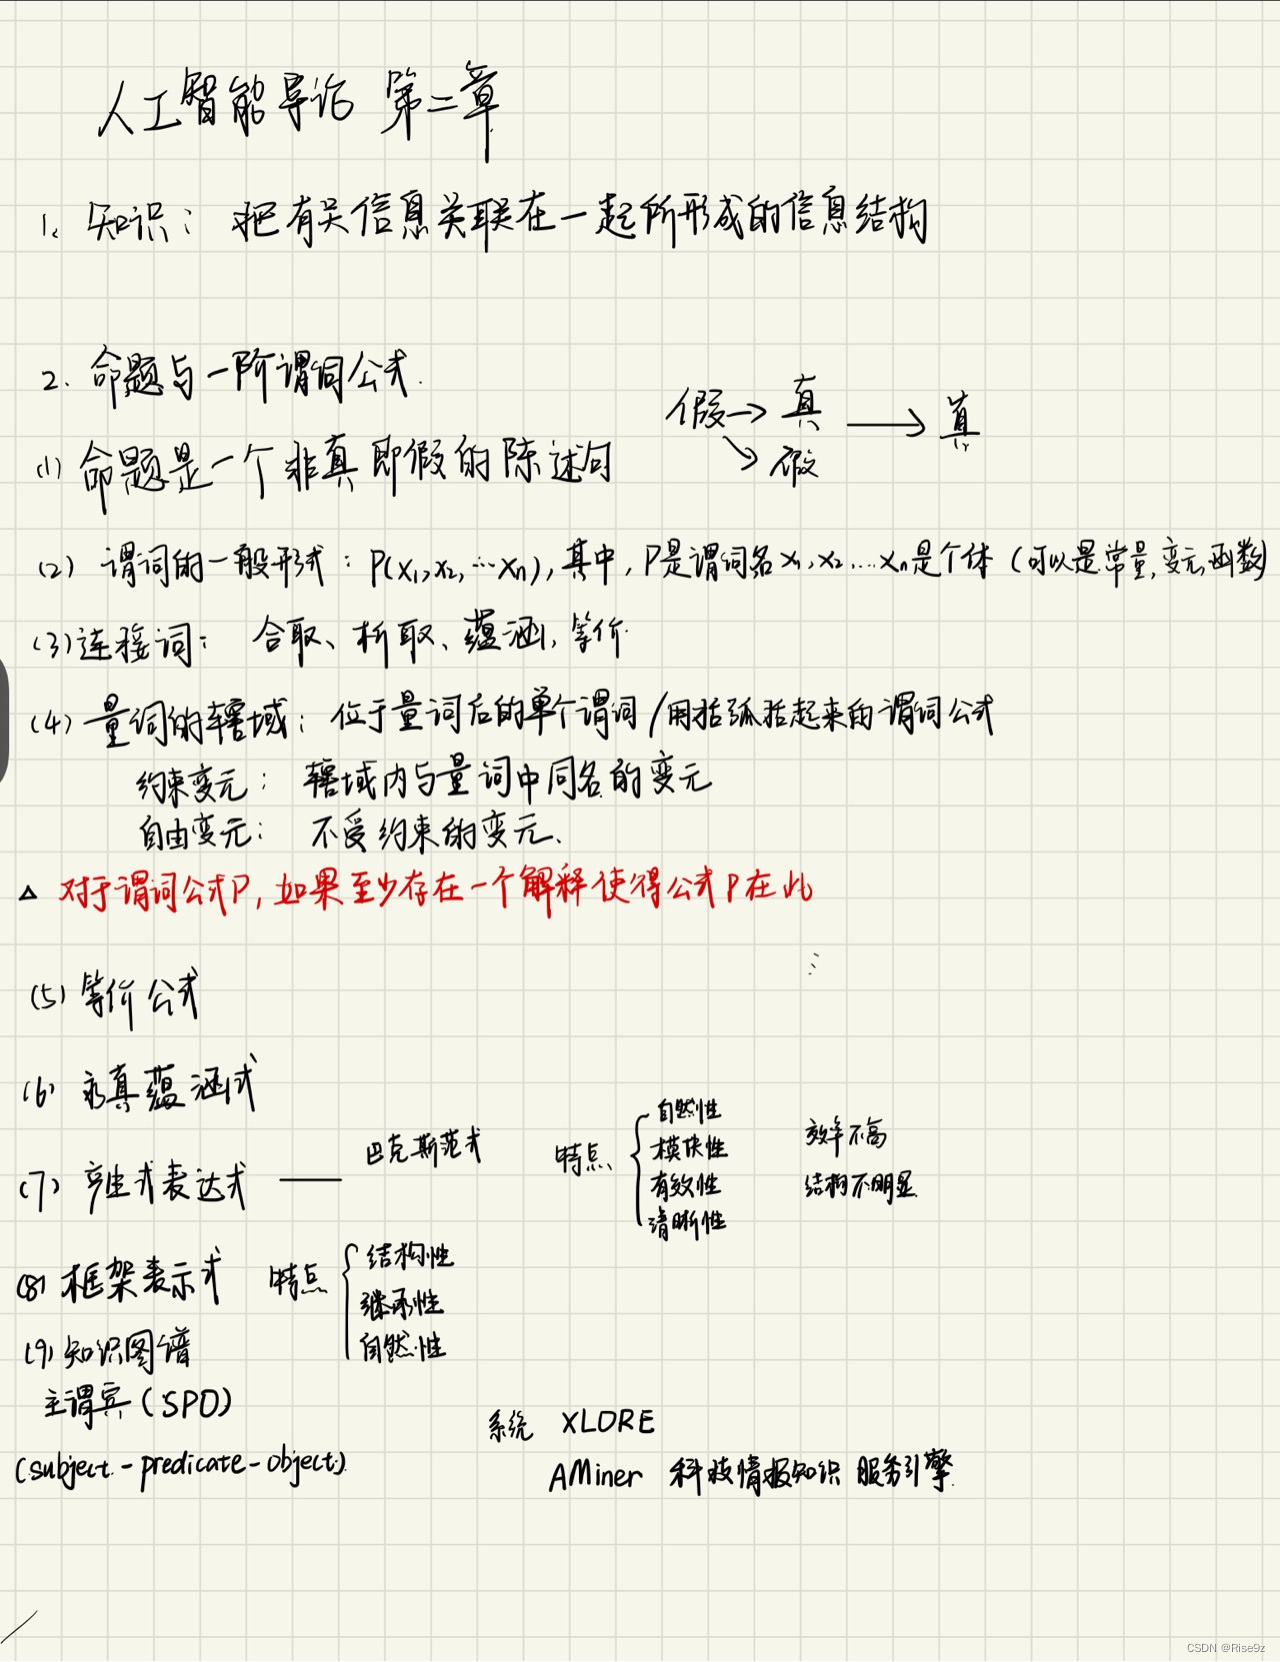 人工智能导论 第二章
1、知识：把有关信息关联在一起所形成的信息结构
2. 命题与一阶谓词公式.
假→真→真
↘假
(1) 命题是一个非真即假的陈述句
(2) 谓词的一般形式：P(x1,x2,…xn),其中,P是谓词名x1,x2….xn是个体(可以是常量,变元,函数)
(3)连接词：合取、析取、蕴涵,等价.
(4) 量词的辖域：位于量词后的单个谓词/用括弧括起来的谓词公式
约束变元：辖域内与量词中同名的变元
自由变元：不受约束的变元.
△ 对于谓词公式P,如果至少存在一个解释使得公式P在此
(5) 等价公式
(6) 永真蕴涵式
(7) 产生式表达式 —— 巴克斯范式 特点 { 自然性
模块性
有效性
清晰性
效率不高
结构不明显
(8) 框架表示式 特点 { 结构性
继承性
自然性
(9)知识图谱
主谓宾(SPO)
(subject-predicate-object)
系统 XLORE
AMiner 科技情报知识服务引擎
CSDN @Rise9z